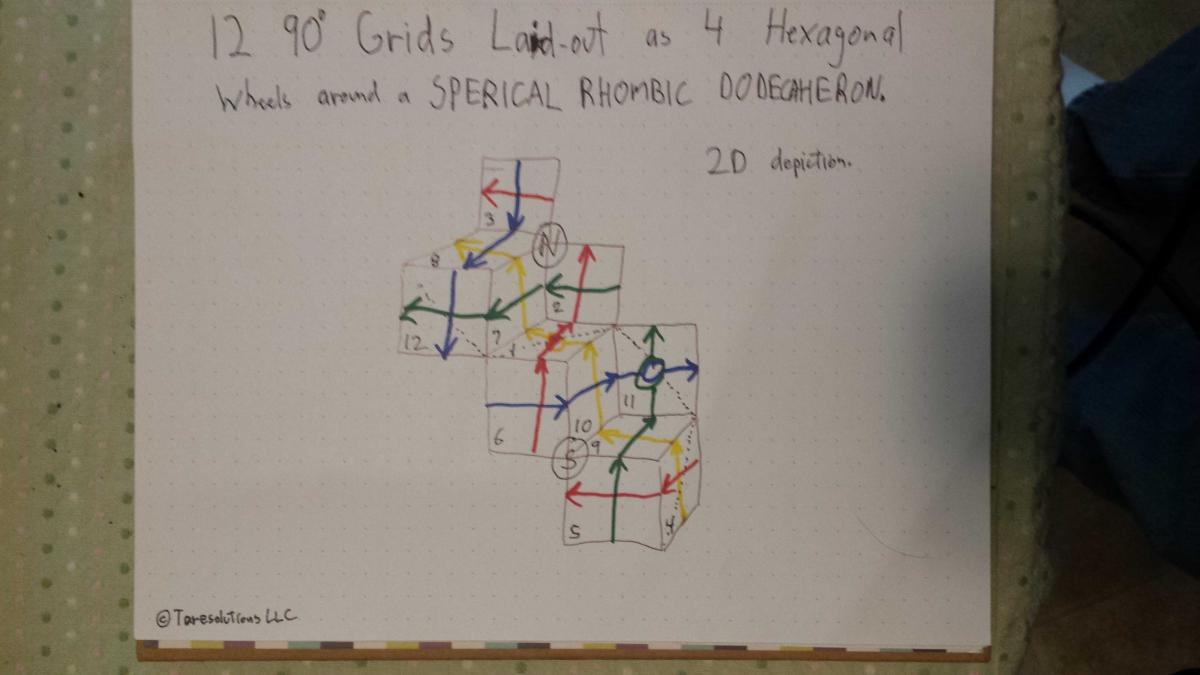 12 90° Grids Laid-out as 4 Hexagonal
Wheels around a SPERICAL RHOMBIC DODECAHERON.
2D depiction.
3
N
8
2
12
7
1
11
6
10
9
S
5
4
© Taresolutions LLC